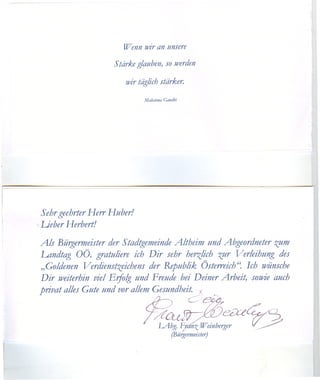 Wenn wir an unsere
Stärke glauben, so werden
wir täglich stärker.
Mahatma Gandhi
Sehr geehrter Herr Huber!
Lieber Herbert!
Als Bürgermeister der Stadtgemeinde Altheim und Abgeordneter zum
Landtag OÖ. gratuliere ich Dir sehr herzlich zur Verleihung des
„Goldenen Verdienstzeichens der Republik Österreich“. Ich wünsche
Dir weiterhin viel Erfolg und Freude bei Deiner Arbeit, sowie auch
privat alles Gute und vor allem Gesundheit.
Dein
Franz Weinberger
LAbg. Franz Weinberger
(Bürgermeister)